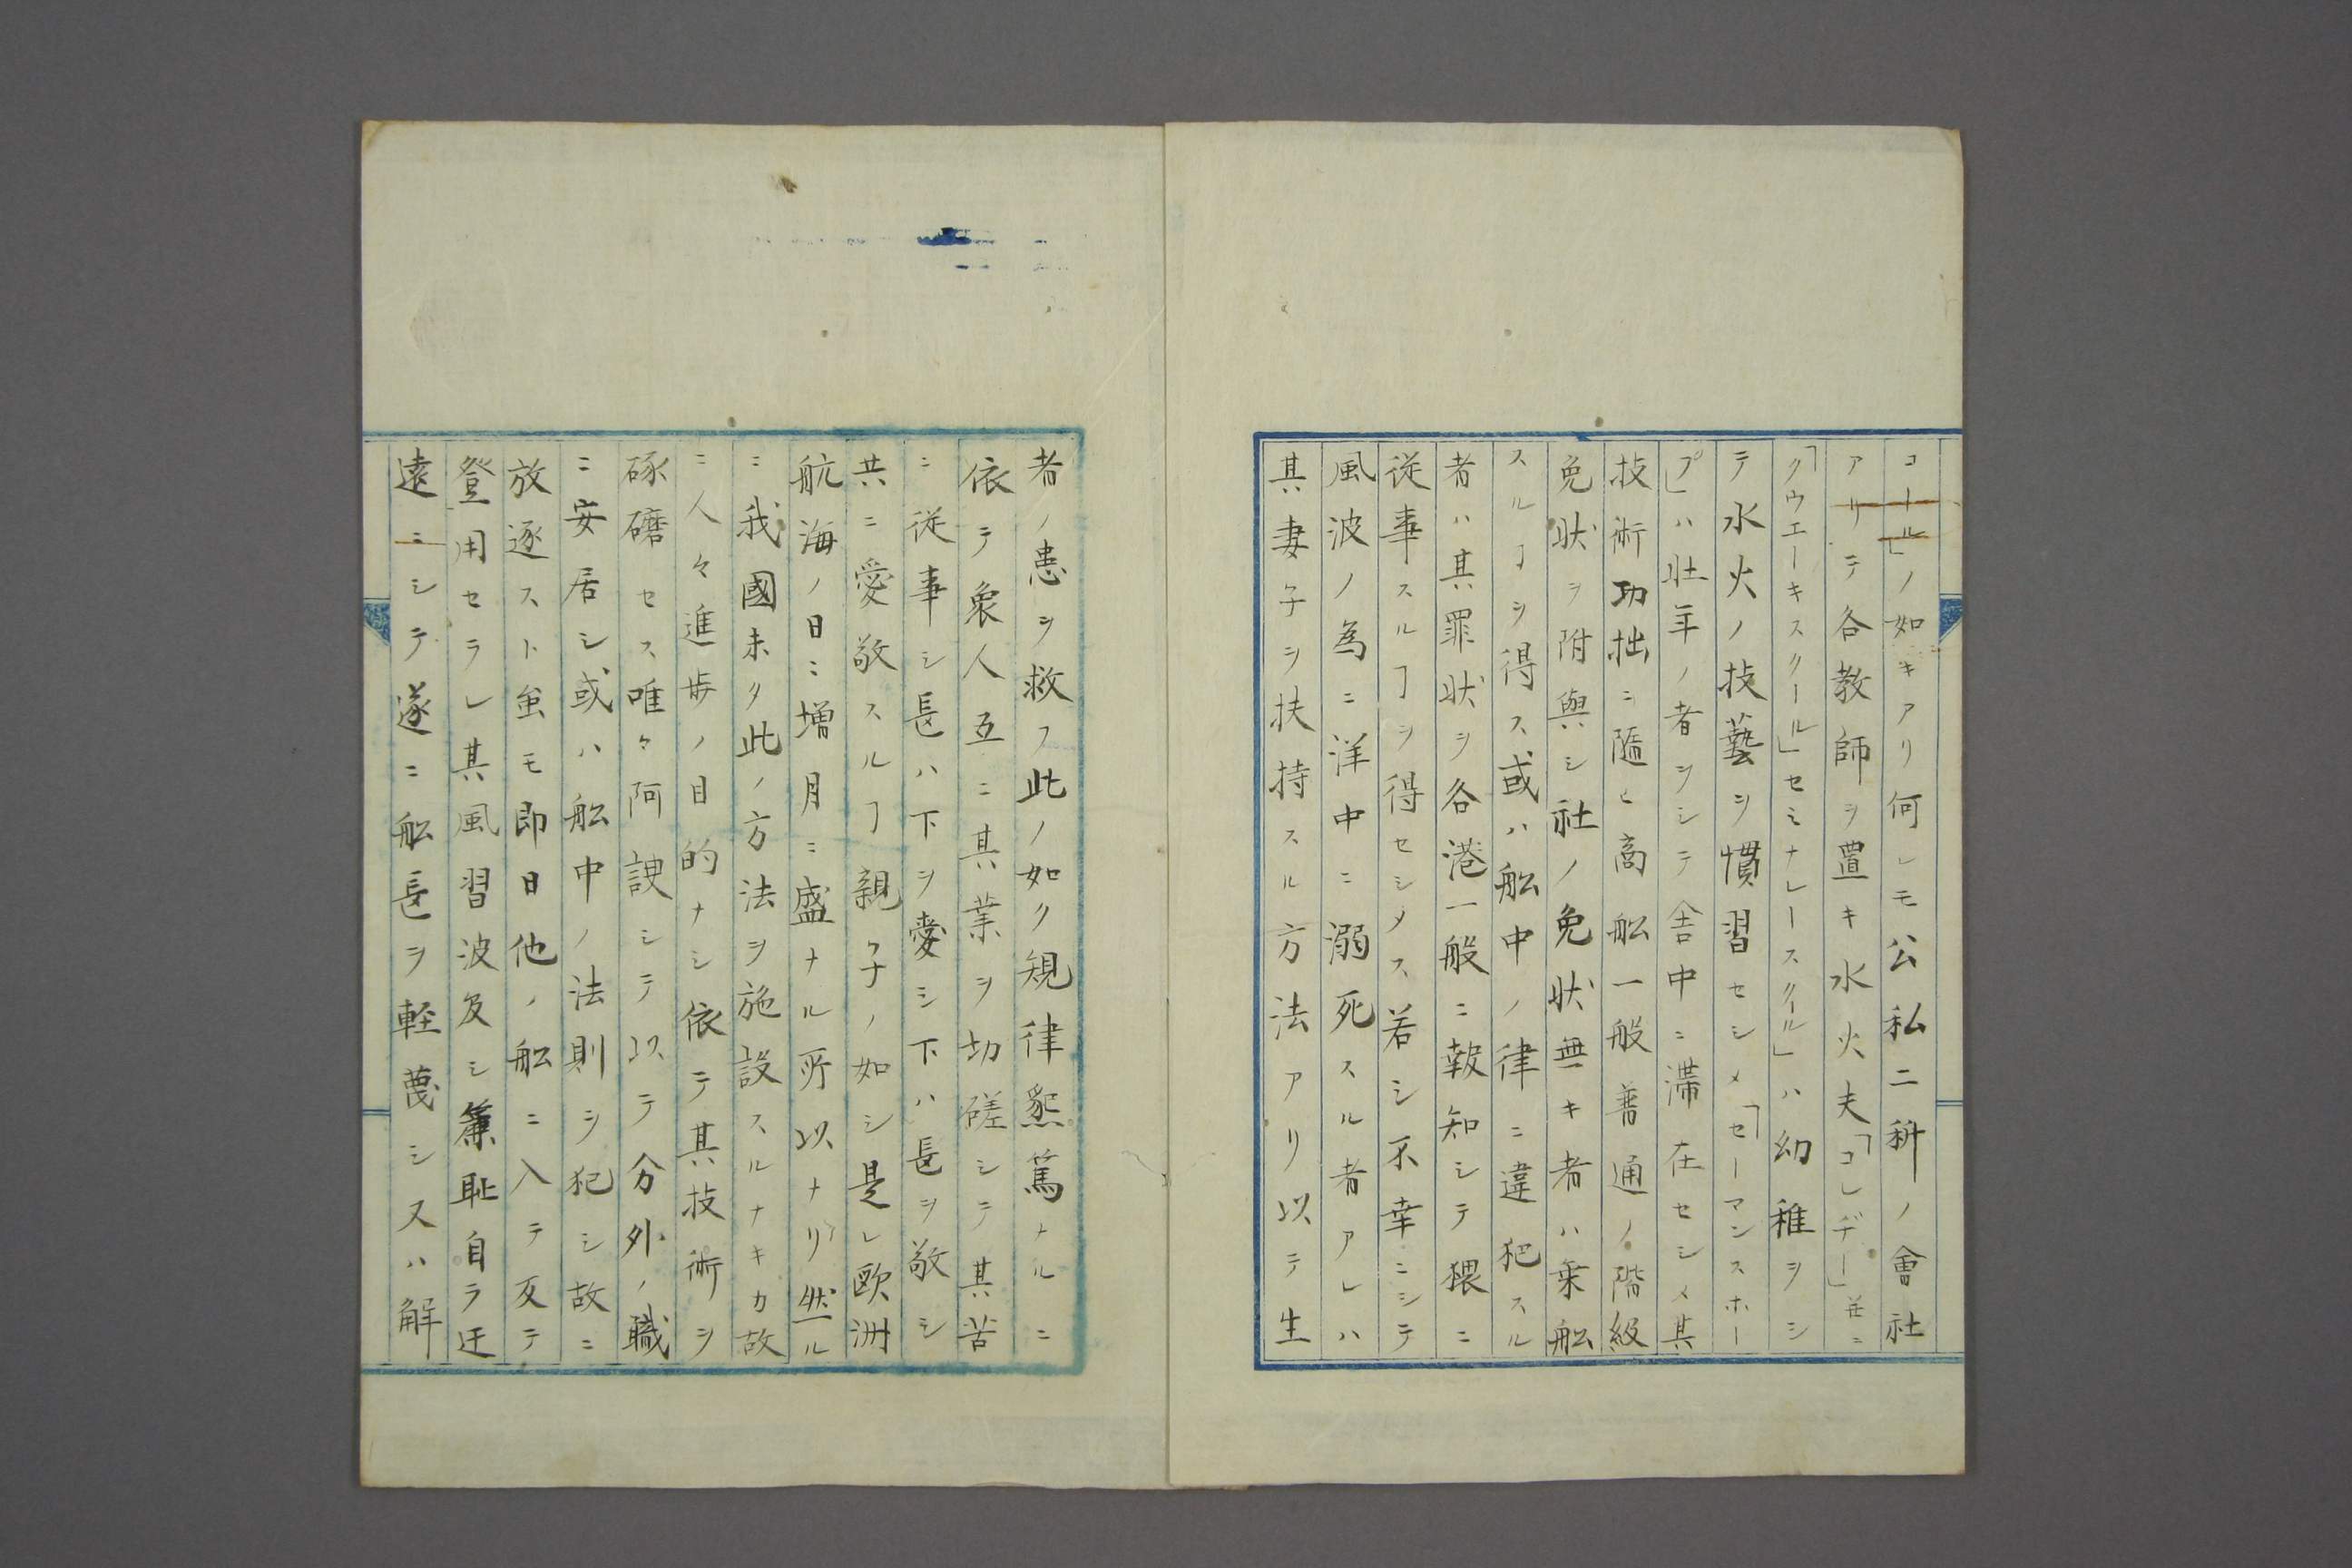 コール」ノ如キアリ何レモ公私二科ノ會社
アリテ各教師ヲ置キ水火夫「コレヂー」並ニ
「クウエーキスクール」セミナレースクール」ハ幼稚ヲシ
テ水火ノ技藝ヲ慣習セシメ「セーマンスホー
プ」ハ壮年ノ者ヲシテ舎中ニ滞在セシメ其
技術功拙ニ随ヒ高舩一般普通ノ階級
免狀ヲ附與シ社ノ免狀無キ者ハ乗舩
スルヿヲ得ス或ハ舩中ノ律ニ違犯スル
者ハ其罪狀ヲ各港一般ニ報知シテ猥ニ
従事スルヿヲ得セシメス若シ不幸ニシテ
風波ノ為ニ洋中ニ溺死スル者アレハ
其妻子ヲ扶持スル方法アリ以テ生
者ノ患ヲ救フ此ノ如ク規律懇篤ナルニ
依テ衆人互ニ其業ヲ切磋シテ其苦
ニ従事シ長ハ下ヲ愛シ下ハ長ヲ敬シ
共ニ愛敬スルヿ親子ノ如シ是レ歐洲
航海ノ日ニ增月ニ盛ナル所以ナリ然ル
ニ我國未タ此ノ方法ヲ施設スルナキカ故
ニ人々進歩ノ目的ナシ依テ其技術ヲ
琢磨セス唯々阿諛シテ以テ分外ノ職
ニ安居シ或ハ舩中ノ法則ヲ犯シ故ニ
放逐スト虽モ即日他ノ舩ニ入テ反テ
登用セラレ其風習波及シ簾耻自ラ迂
遠ニシテ遂ニ舩長ヲ軽蔑シ又ハ解